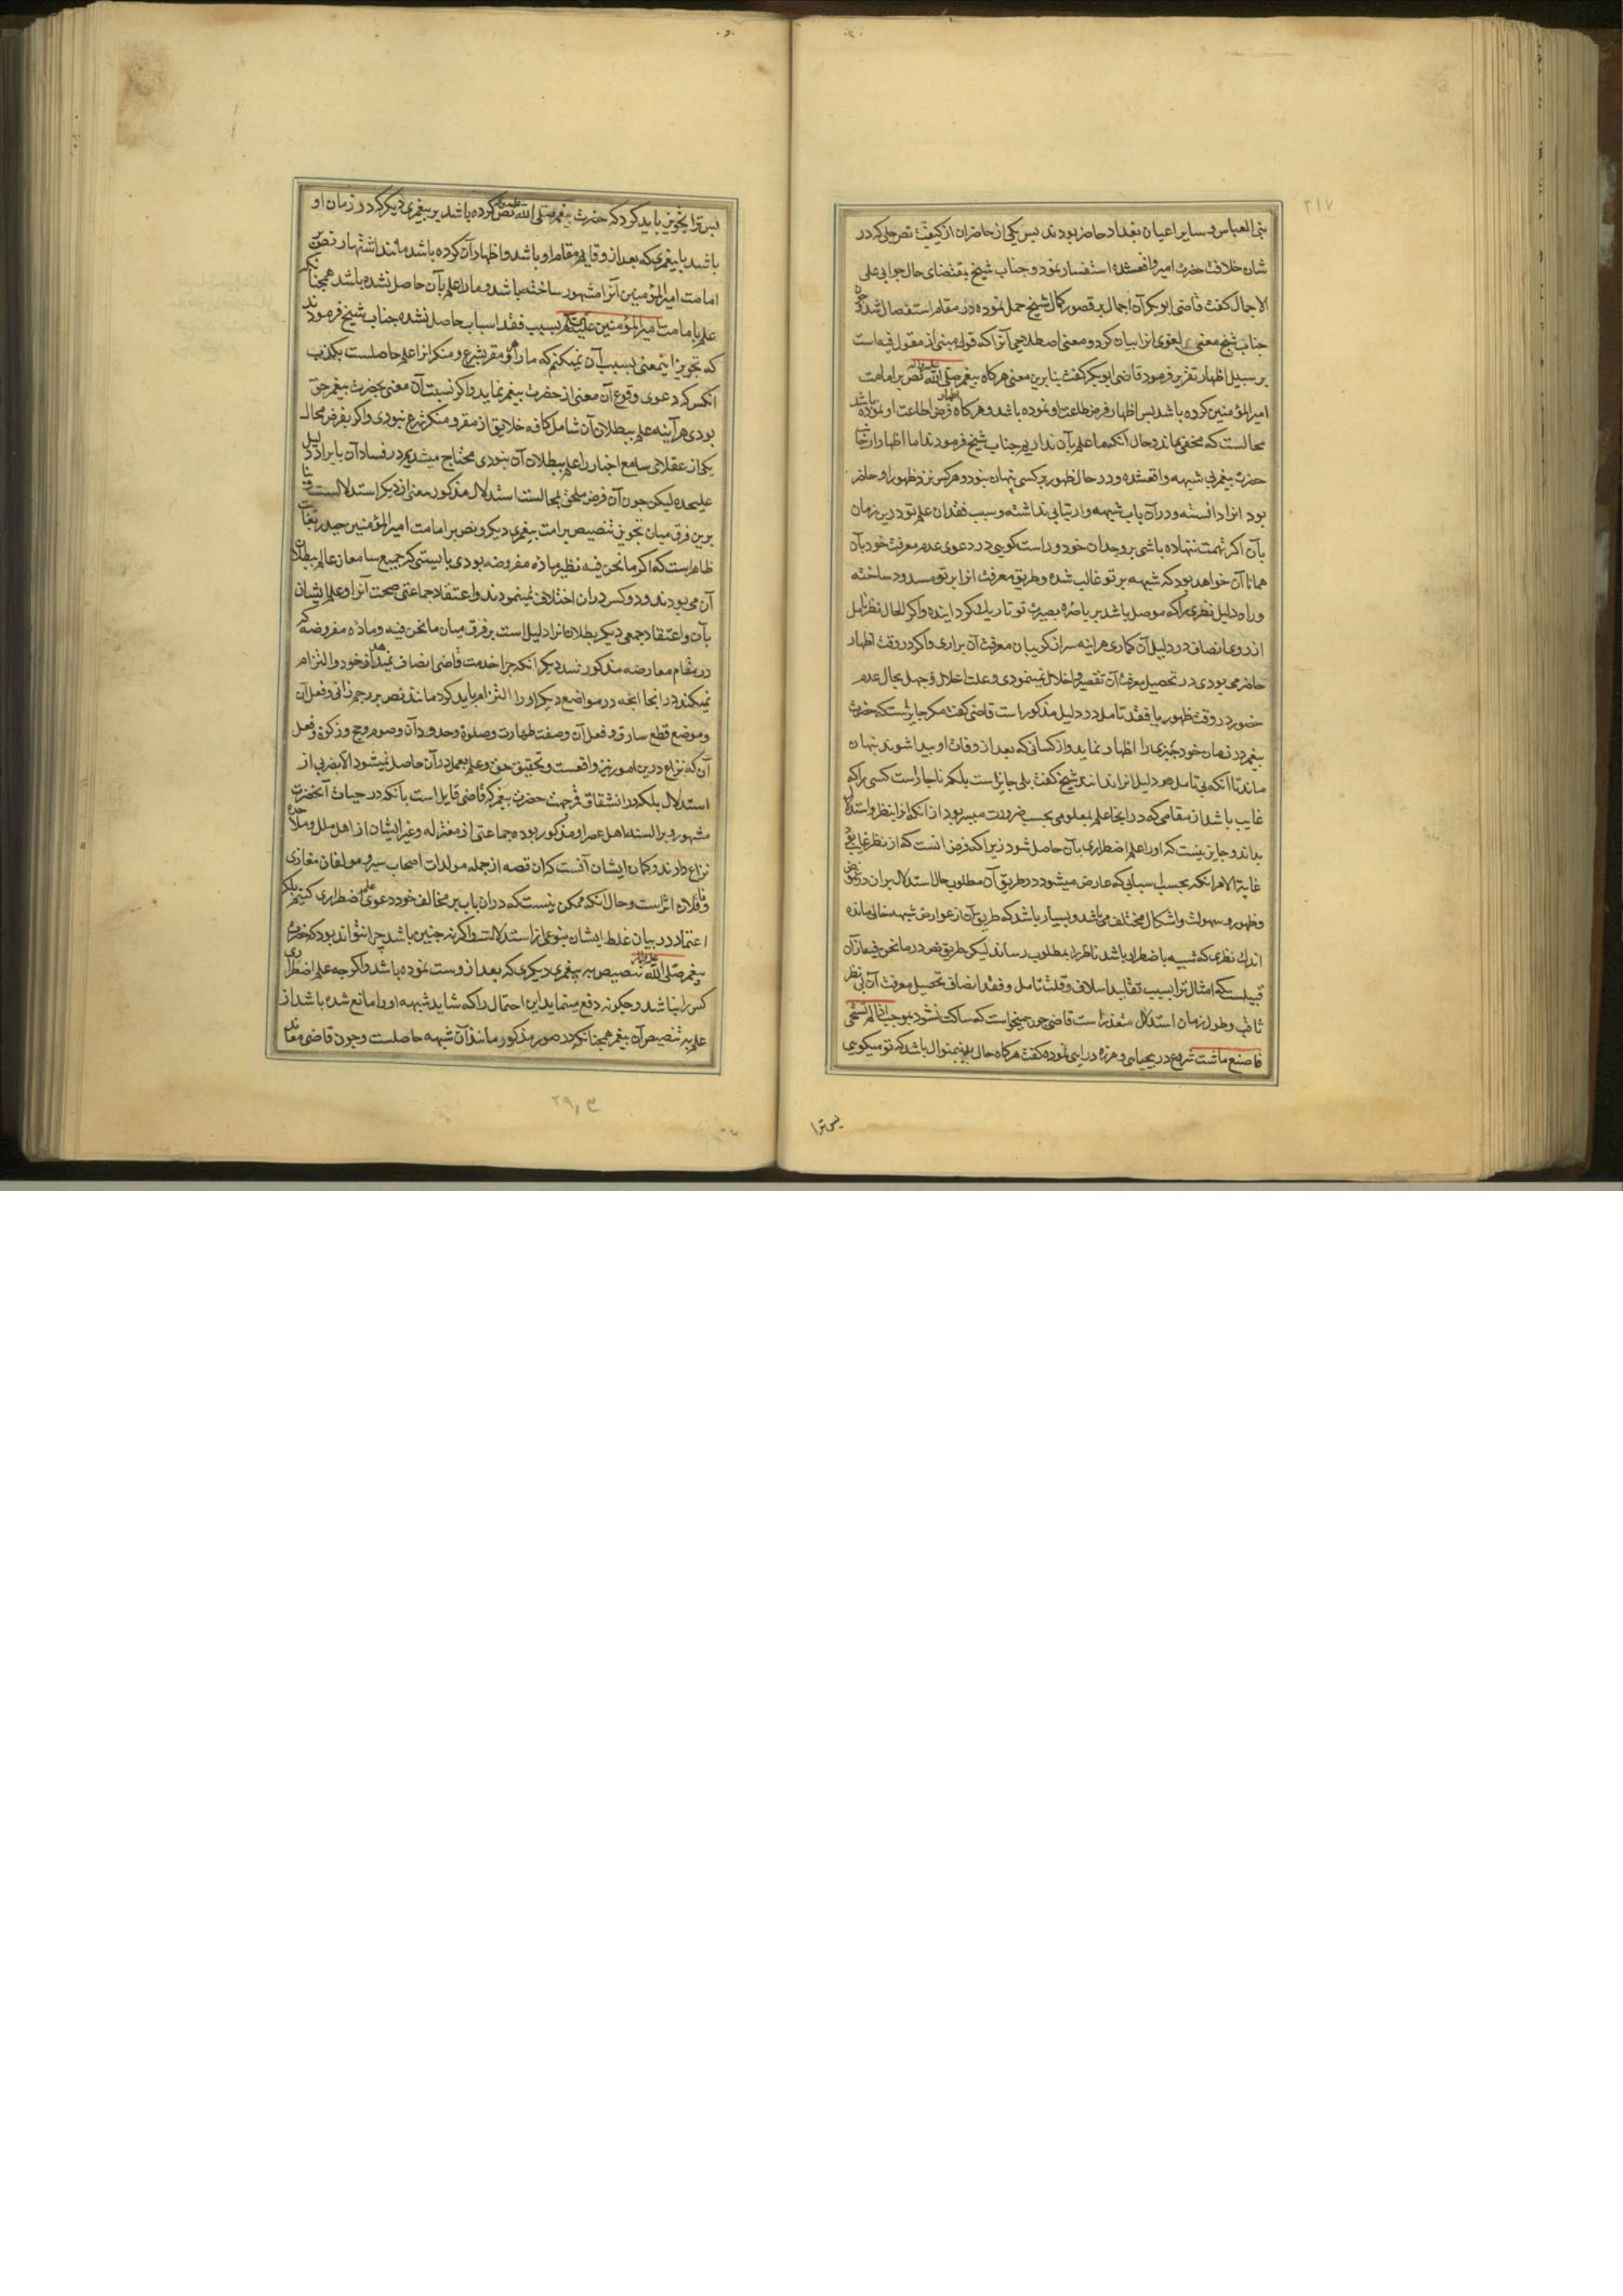 ۲۱۷
بنی العباس و سایر اعیان بغداد حاضر بودند پس یکی از حاضران از کیفیت نص جلی که در
شان خلافت حضرت امیر واقعشده استفسار نمود و جناب شیخ بمقتضای حال جوابی علی
الاجمال گفت قاضی ابوبکر آن اجمال بر قصور کمال شیخ حمل نموده در مقام استفصال شد
جناب شیخ معنی لغوی انرا بیان کرد و معنی اصطلاحی آنرا که قولی مبنی از مقول فیه است
بر سبیل اظهار تقریر فرمود قاضی ابوبکر گفت بنابرین معنی هر کاه پیغمبر صلی الله علیه و اله نص بر امامت
امیر المؤمنین کرده باشد پس اظهار فرض طاعت او نموده باشد و هر کاه اظهار فرض اطاعت او نموده باشد
محالست که مخفی بماند و حال آنکه ما علم بآن نداریم جناب شیخ فرمودند اما اظهار از جانب
حضرت پیغمبر بی شبهه واقعشده و در حال ظهور بر کسی پنهان نبود و هر کس نزد ظهور او حاضر
بود انرا دانسته و در آن باب شبهه و ارتیابی نداشته و سبب فقدان علم تو درین زمان
بآن اکر تهمت ننهاده باشی بر وجدان خود و راست کویی در دعوی عدم معرفت خود بآن
همانا آن خواهد بود که شبهه بر تو غالب شده و طریق معرفت انرا بر تو مسدود ساخته
و راه دلیل نظری را که موصل باشد بر باصره بصیرت تو تاریک کردانیده و اکر الحال نظر تامل
از روی انصاف در دلیل آن کماری هر اینه سر از کریبان معرفت آن براری و اکر در وقت اظهار
حاضر می بودی در تحصیل معرفت آن تقصیر و اخلال نمینمودی و علت اخلال و جهل بحال عدم
حضور در وقت ظهور با فقد تامل در دلیل مذکور است قاضی گفت مکر جایزست که حضرت
پیغمبر در زمان خود چیزی را اظهار نماید و از کسانی که بعد از وفات او پیدا شوند پنهان
ماند تا آنکه بی تامل در دلیل انرا ندانند شیخ گفت بلی جایز است بلکه ناچارست کسی را که
غایب باشد از مقامی که در انجا علم بمعلومی بحسب ضرورت میسر بود از آنکه انرا بنظر و استدلال
بداند و جایز نیست که او را علم اضطراری بآن حاصل شود زیرا که فرض آنست که از نظر غایب بود
غایة الامر انکه بحسب اسبابی که عارض میشود در طریق آن مطلوب حال استدلال بران در غموض
و ظهور و سهولت و اشکال مختلف می باشد و بسیار باشد که طریق آن از عوارض شبهه خالی مانده
اندک نظری که شبیه باضطرار باشد ناظر را بمطلوب رساند لیکن طریق نص در مانحن فیه از آن
قبیلست که امثال ترا بسبب تقلید اسلاف و قلت تامل و فقد انصاف تحصیل معرفت آن بی نظر
ثاقب و طول زمان استدلال متعذر است قاضی چون میخواست که ساکت نشود بموجب اذا لم تستحی
فاصنع ما شئت شروع در بیحیایی و هرزه درایی نموده گفت هر کاه حال بدین منوال باشد که تو میکویی
پس ترا
پس ترا تجویز باید کرد که حضرت پیغمبر صلی الله علیه و اله نص کرده باشد بر پیغمبری دیگر که در زمان او
باشد یا پیغمبری که بعد از و قایم مقام او باشد و اظهار آن کرده باشد مانند اشتهار نص بر
امامت امیر المؤمنین آنرا مشهور ساخته باشد و ما را علم بآن حاصل نشده باشد همچنانکه
علم بامامت امیر المؤمنین علیه السلام بسبب فقد اسباب حاصل نشده جناب شیخ فرمودند
که تجویز این معنی بسبب آن نمیکنم که ما را و هر مقر بشرع و منکر انرا علم حاصلست بکذب
انکس که دعوی وقوع آن معنی از حضرت پیغمبر نماید و اکر نسبت آن معنی بحضرت پیغمبر حق
بودی هر آینه علم ببطلان آن شامل کافه خلایق از مقر و منکر شرع نبودی و اکر بفرض محال
یکی از عقلای سامع اخبار را علم ببطلان آن نبودی محتاج میشدیم در فساد آن بایراد دلیل
علیحده لیکن چون آن فرض ملحق بمحالست استدلال مذکور مغنی از دیکر استدلالست
برین فرق میان تجویز تنصیص بر امت پیغمبری دیکر و نص بر امامت امیر المؤمنین حیدر بغایت
ظاهرست که اکر مانحن فیه نظیر ماده مفروضه بودی بایستی که جمیع سامعان عالم ببطلان
آن می بودند و دو کس در ان اختلاف نمینمودند و اعتقاد جماعتی صحت آنرا و علم ایشان
بآن و اعتقاد جمعی دیکر بطلان انرا دلیل است بر فرق میان مانحن فیه و ماده مفروضه که
در مقام معارضه مذکور شد دیکر آنکه چرا خدمت قاضی انصاف نمیدهد از خود و التزام
نمیکند در انجا انچه در مواضع دیکر او را التزام باید کرد مانند نص بر رجم زانی و فعل آن
و موضع قطع سارق و فعل آن و صفت طهارت و صلوة و حدود آن و صوم و حج و زکوة و فعل
آن که نزاع درین امور نیز واقعست و تحقیق حق و علم بعمل در آن حاصل نمیشود الا بضربی از
استدلال بلکه در انشقاق قمر جهت حضرت پیغمبر که قاضی قایل است بآنکه در حیات آنحضرت
مشهور و بر السنه اهل عصر او مذکور بوده جماعتی از معتزله و غیر ایشان از اهل ملل و ملاحده
نزاع دارند و کمان ایشان آنست که ان قصه از جمله مولدات اصحاب سیر و مولفان مغازی
و ناقلان اثر است و حال انکه ممکن نیست که در ان باب بر مخالف خود دعوی علم اضطراری کنیم بلکه
اعتماد در بیان غلط ایشان بنوعی از استدلالست و اکر نه چنین باشد چرا نتواند بود که حضرت
پیغمبر صلی الله علیه و اله تنصیص بر پیغمبری دیکری که بعد از وست نموده باشد و اکر چه علم اضطراری
کس را نباشد و چکونه دفع مینماید این احتمال را که شاید شبهه او را مانع شده باشد از
علم بر تنصیص آن پیغمبر همچنانکه در صور مذکور مانند آن شبهه حاصلست و چون قاضی معاند